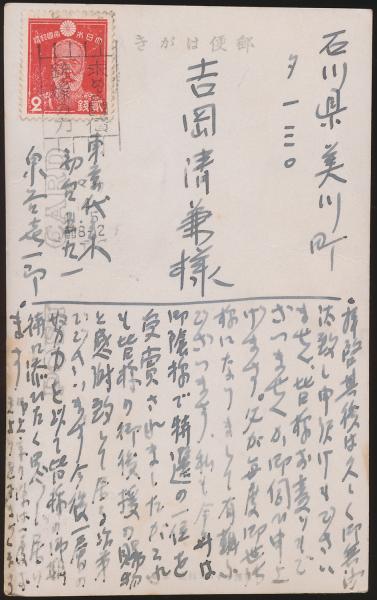 郵便はがき
大日本帝國郵便
2銭
石川県美川町
タ一三〇
吉岡清兼様
東京代々木
初台五九一
泉谷喜一郎
CARD
拝啓其後は久しく御無
汰致し申訳けもござい
ません、皆様お変りもご
ざいませんか御伺ひ申上
げます。父が毎度御世話
様になりまして有難ふ
ございます、私も今度は
御陰様で特選の一位を
受賞されましたがこれ
も皆様の御後援の賜物
と感謝致して居る次第
でございます今後一層の
努力を以て皆様の御期
待に添いたく思って居り
ます